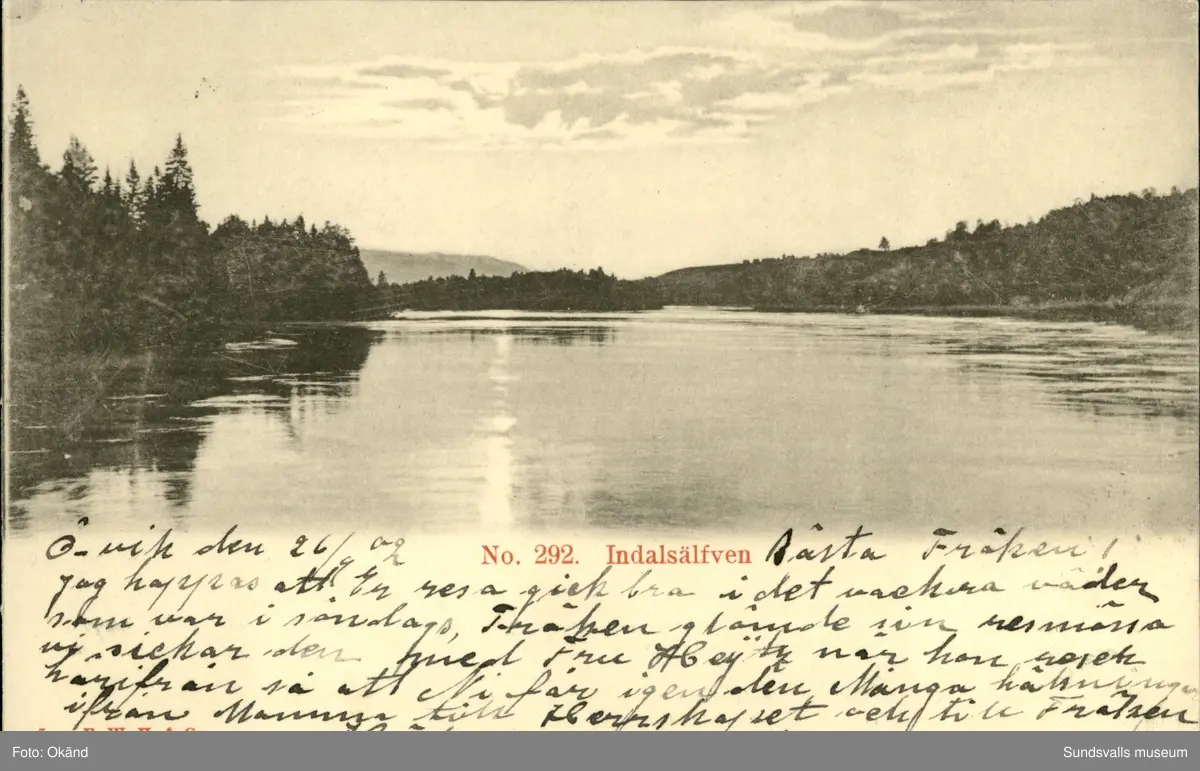 Ö-vik den 26/9 02
No. 292. Indalsälfven
Bästa Fröken!
Jag hoppas att Er resa gick bra i det vackra väder
som var i söndags, Fröken glömde sin resmössa
vi sickar den med Fru när hon reser
härifrån så att Ni får igen den. Många hälsningar
ifrån Mamma till Herrskapet och till Fröken
Foto: Okänd
Sundsvalls museum